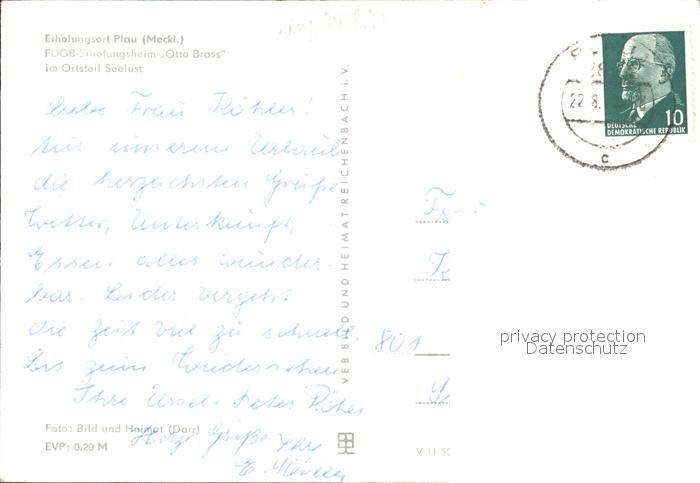 Erholungsort Plau (Meckl.)
FDGB-Erholungsheim „Otto Brass"
im Ortsteil Seelust
Liebe Frau Köhler!
Aus unserem Urlaub
die herzlichsten Grüße
Wetter, Unterkunft,
Essen alles wunder-
bar. Leider vergeht
die Zeit viel zu schnell.
Bis zum Wiedersehen
Ihre
Herzl. Grüße Ihre
Foto: Bild und Heimat (Darr)
EVP: 0,20 M
VEB BILD UND HEIMAT REICHENBACH i. V.
V 11 50
22.8.
C
DEUTSCHE
DEMOKRATISCHE REPUBLIK
10
Frau
801
privacy protection
Datenschutz